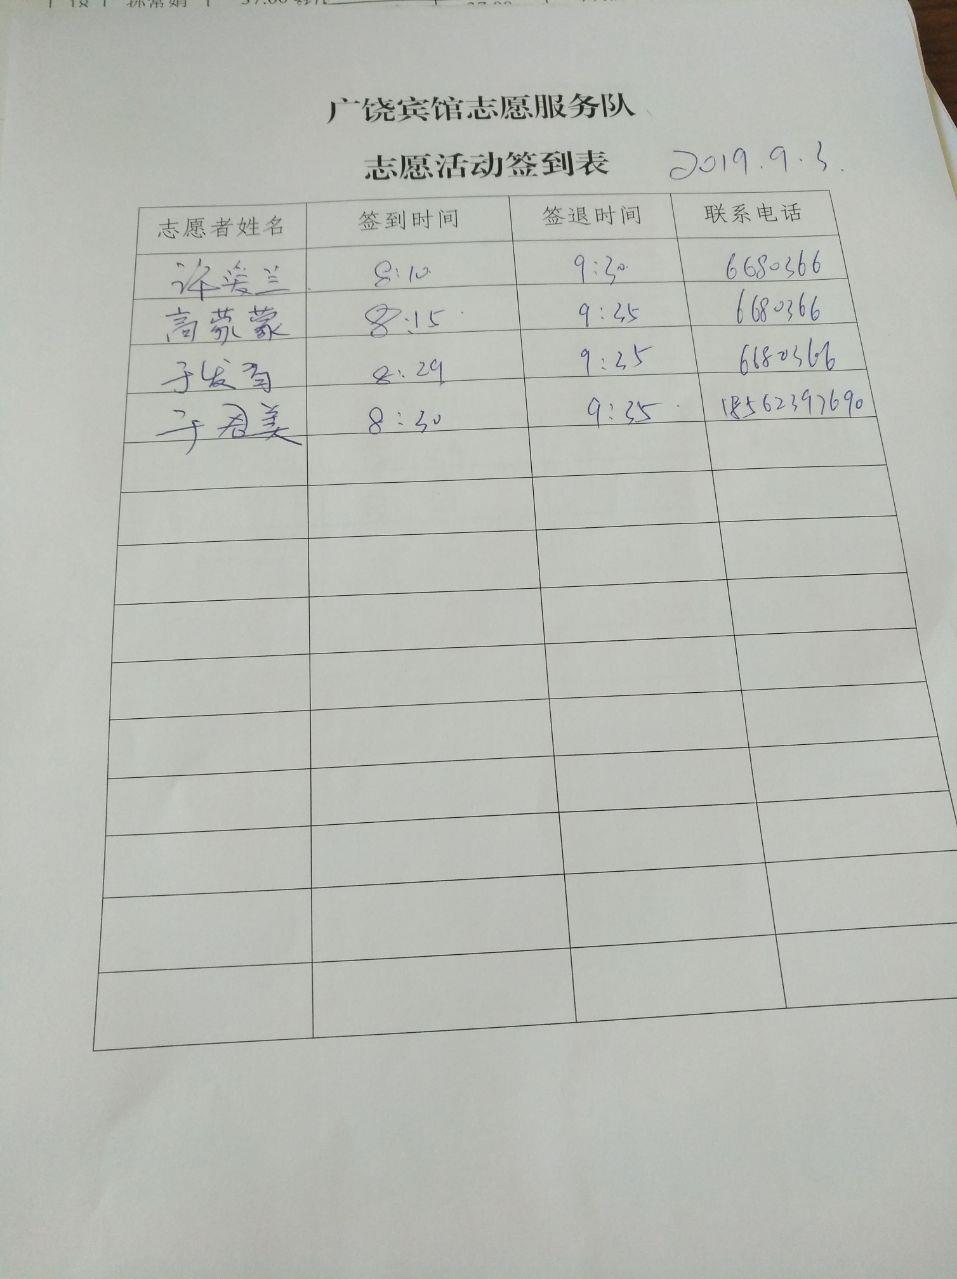 广饶宾馆志愿服务队
志愿活动签到表 2019.9.3.
志愿者姓名 签到时间 签退时间 联系电话
许爱兰 8:10 9:30 6680366
高蒙蒙 8:15 9:35 6680366
8:29 9:35 6680366
于君美 8:30 9:35 18562397690